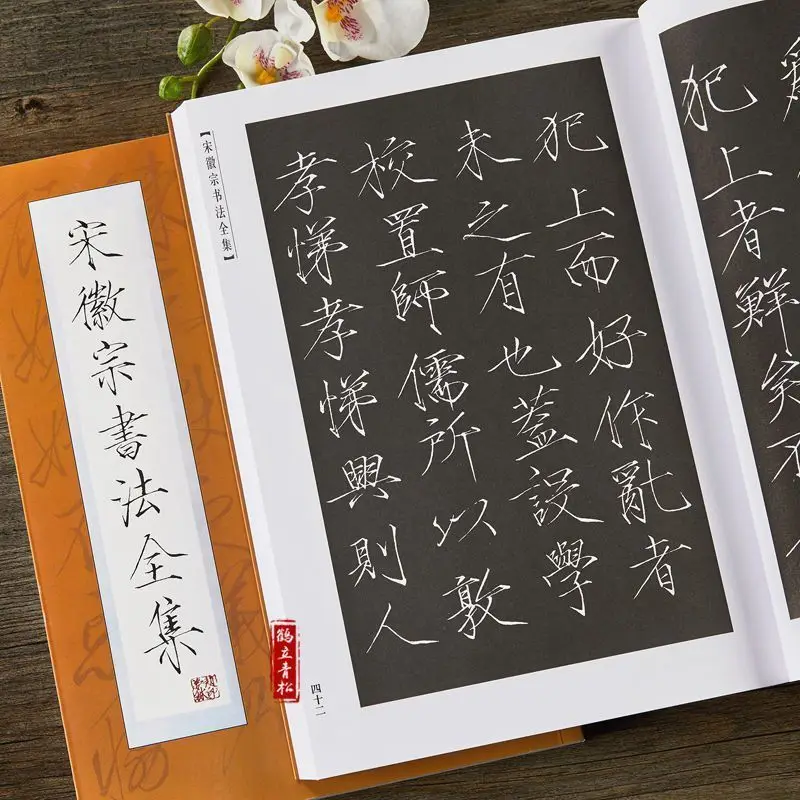 宋徽宗書法全集
【宋徽宗书法全集】
犯上者鮮矣不
犯上而好作亂者
未之有也蓋設學
校置師儒所以敦
孝悌孝悌興則人
四十二
鹤立青松